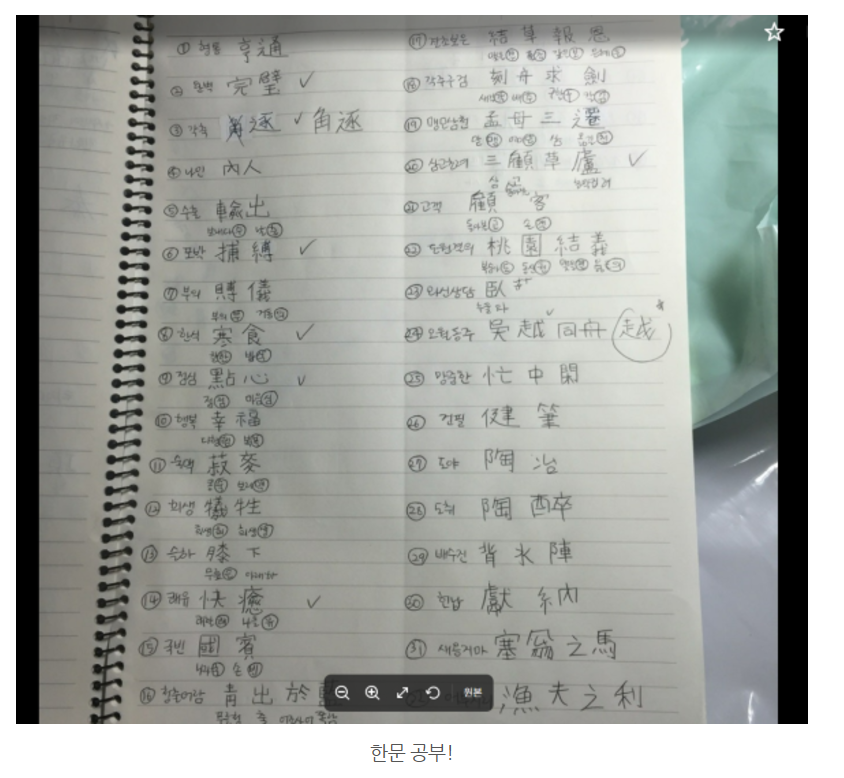 ① 형통 亨通
② 완벽 完璧 ✓
③ 각축 角逐 ✓ 角逐
④ 나인 內人
⑤ 수출 輸出
⑥ 포박 捕縛 ✓
⑦ 부의 賻儀
⑧ 한식 寒食 ✓
⑨ 점심 點心 ✓
점 마음심
⑩ 행복 幸福
⑪ 숙맥 菽麥
⑫ 희생 犧牲
희생희 희생생
⑬ 슬하 膝下
무릎슬 아래하
⑭ 쾌유 快癒 ✓
⑮ 국빈 國賓
나라국 손빈
⑯ 청출어람 靑出於
⑰ 결초보은 結草報恩
⑱ 각주구검 刻舟求劍
⑲ 맹모삼천 孟母三遷
⑳ 삼고초려 三顧草廬 ✓
㉑ 고객 顧客
㉒ 도원결의 桃園結義
㉓ 와신상담 臥
누울와
㉔ 오월동주 吳越同舟 越
㉕ 망중한 忙中閑
㉖ 건필 健筆
㉗ 도야 陶冶
㉘ 도취 陶醉
㉙ 배수진 背水陣
㉚ 헌납 獻納
㉛ 새옹지마 塞翁之馬
漁夫之利
원본
한문 공부!